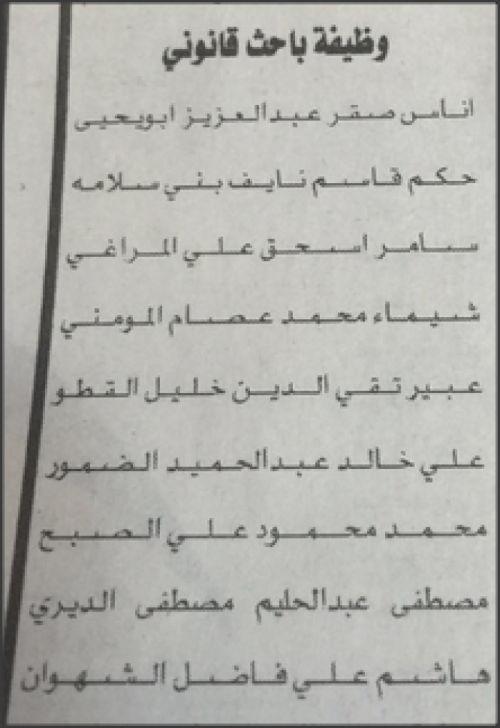 وظيفة باحث قانوني
اناس صقر عبدالعزيز ابويحيى
حكم قاسم نايف بني سلامه
سامر اسحق علي المراغي
شيماء محمد عصام المومني
عبير تقي الدين خليل القطو
علي خالد عبدالحميد الضمور
محمد محمود علي الصبح
مصطفى عبدالحليم مصطفى الديري
هاشم علي فاضل الشهوان